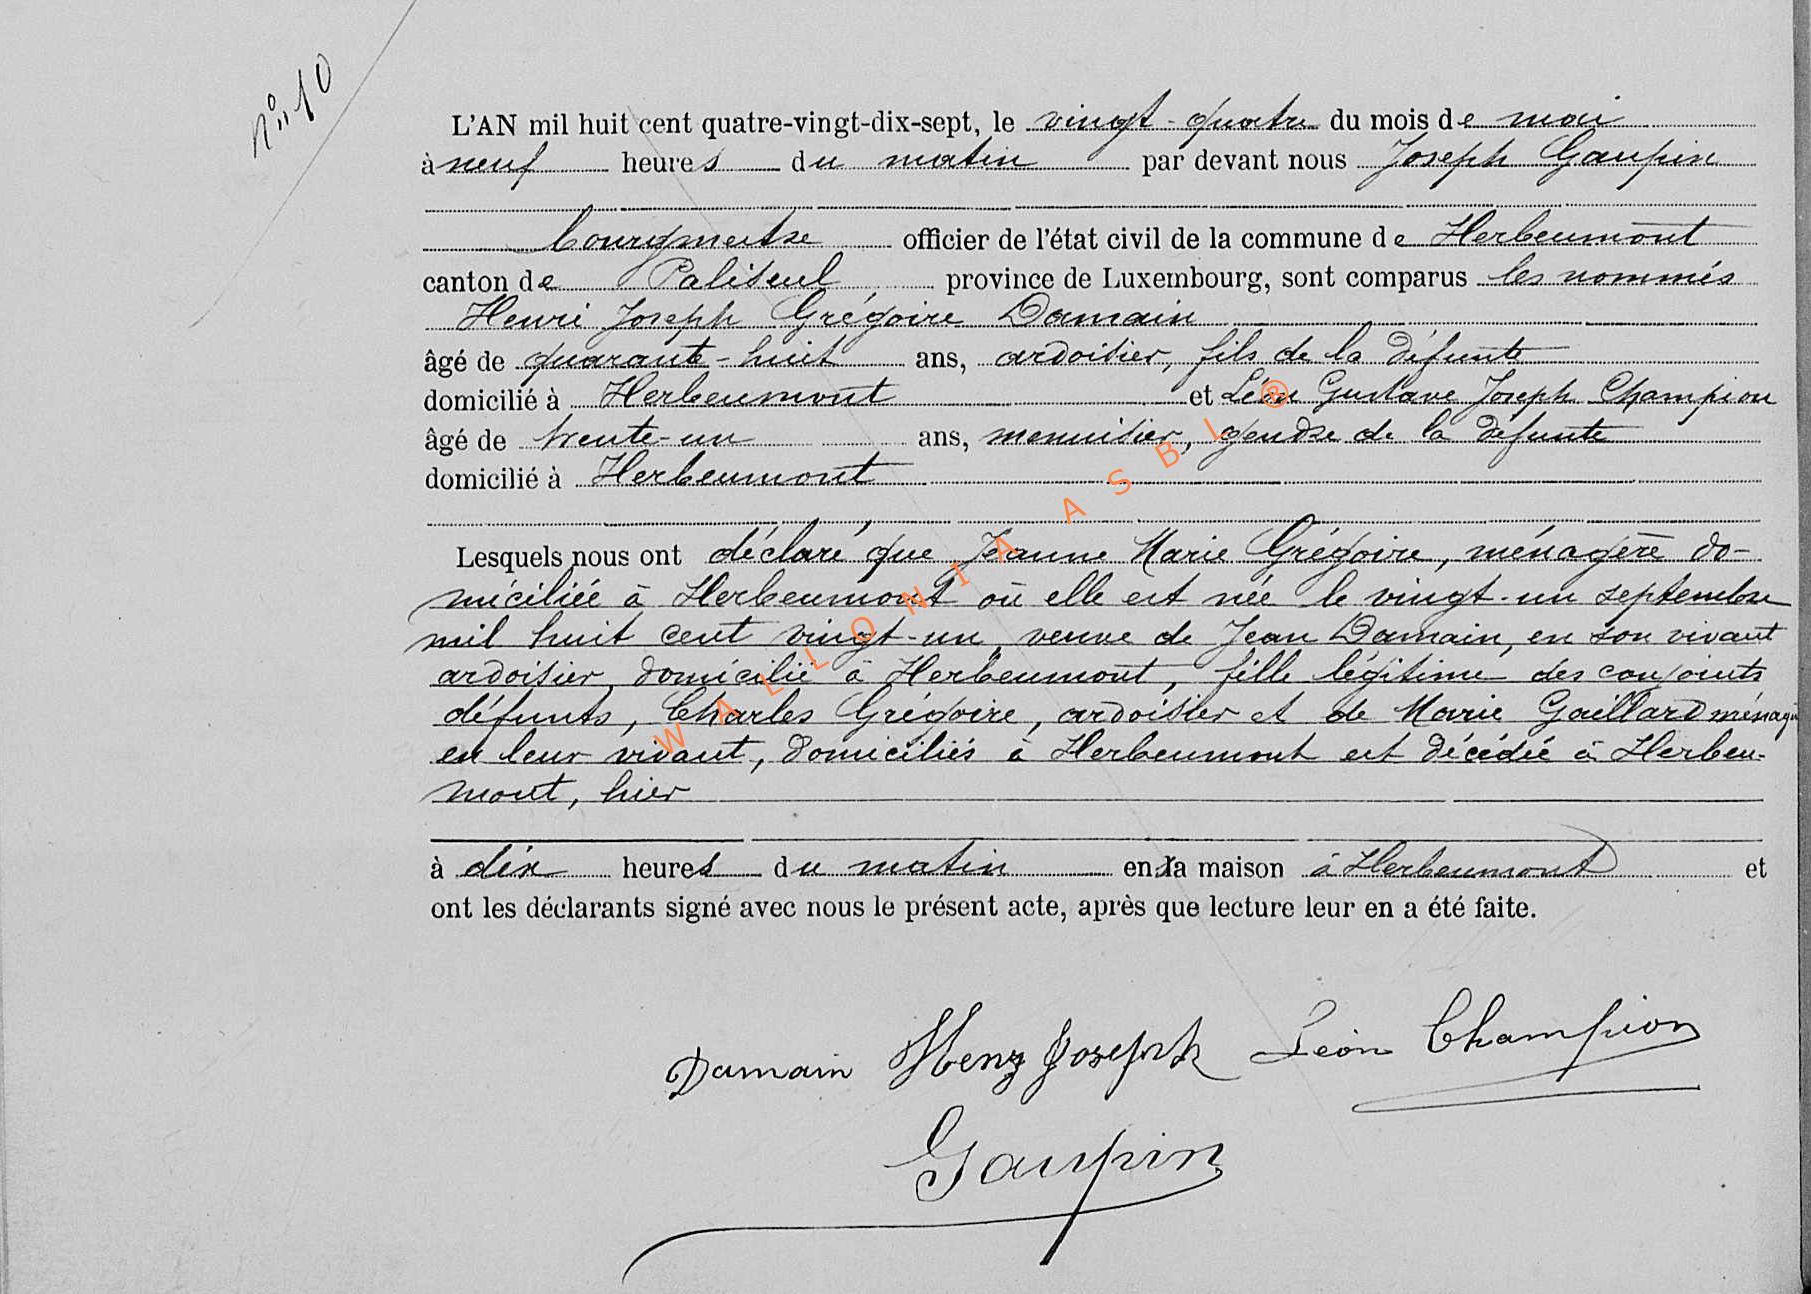 N° 10
L'AN mil huit cent quatre-vingt-dix-sept, le vingt-quatre du mois de mai
à neuf heures du matin par devant nous Joseph Gaupin
bourgmestre officier de l'état civil de la commune de Herbeumont
canton de Paliseul, province de Luxembourg, sont comparus les nommés
Henri Joseph Grégoire Damain
âgé de quarante-huit ans, ardoisier, fils de la défunte
domicilié à Herbeumont et Léon Gustave Joseph Champion
âgé de trente-un ans, menuisier, gendre de la défunte
domicilié à Herbeumont
Lesquels nous ont déclaré que Jeanne Marie Grégoire, ménagère do-
miciliée à Herbeumont où elle est née le vingt-un septembre
mil huit cent vingt-un, veuve de Jean Damain, en son vivant
ardoisier, domicilié à Herbeumont, fille légitime des conjoints
défunts, Charles Grégoire, ardoisier et de Marie Gaillard ménagère
en leur vivant, domiciliés à Herbeumont est décédée à Herbeu-
mont, hier
à dix heures du matin en sa maison à Herbeumont et
ont les déclarants signé avec nous le présent acte, après que lecture leur en a été faite.
Damain Henry Joseph Léon Champion
Gaupin
WALLONIA ASBL ®